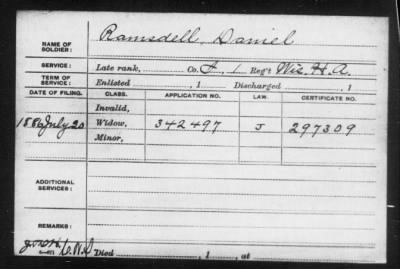 Ramsdell, Daniel
NAME OF SOLDIER:
SERVICE: Late rank, Co. I, 1 Reg't Wis. H. A.
TERM OF SERVICE: Enlisted , 1 Discharged , 1
DATE OF FILING. CLASS. APPLICATION NO. LAW. CERTIFICATE NO.
Invalid,
1886 July 20 Widow, 342497 J 297309
Minor,
ADDITIONAL SERVICES:
REMARKS:
Died , 1 , at